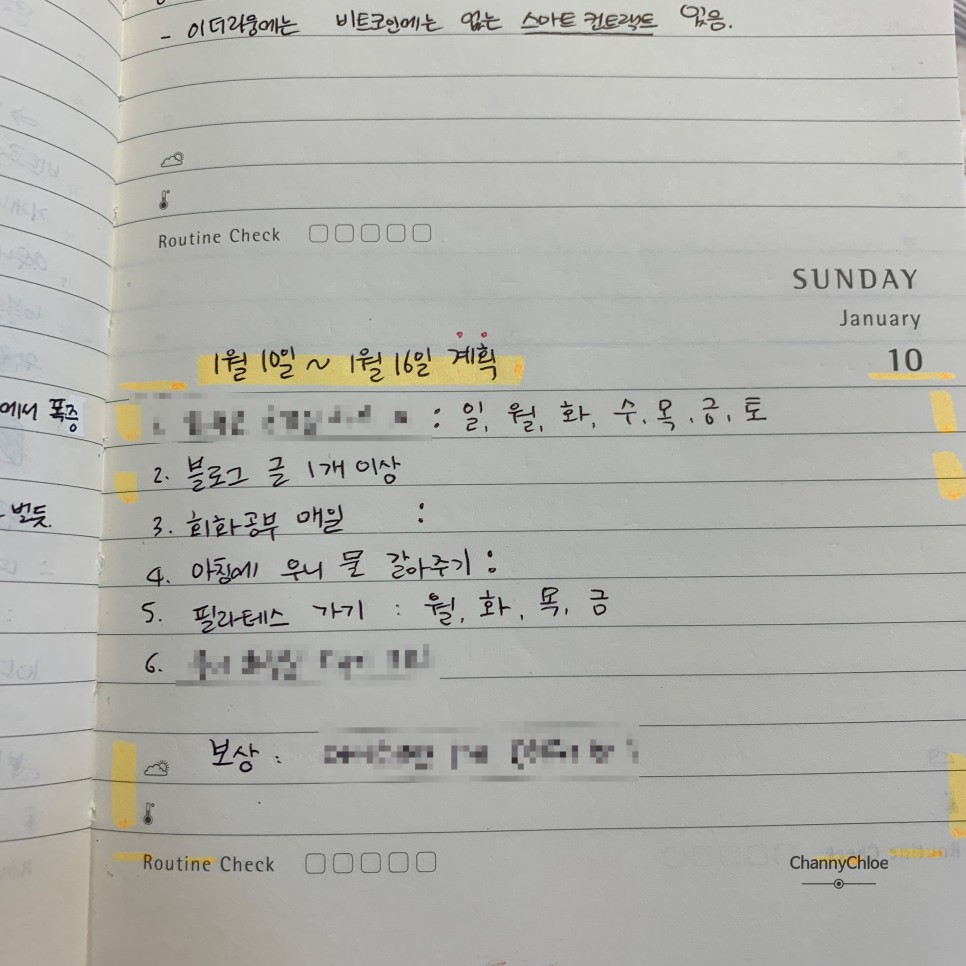 - 이더리움에는 비트코인에는 없는 스마트 컨트랙트 있음.
Routine Check
SUNDAY
January
10
1월 10일 ~ 1월 16일 계획
에서 폭증
: 일, 월, 화, 수, 목, 금, 토
2. 블로그 글 1개 이상
벌듯.
3. 회화공부 매일 :
4. 아침에 우니 물 갈아주기 :
5. 필라테스 가기 : 월, 화, 목, 금
6.
보상 :
Routine Check
ChannyChloe